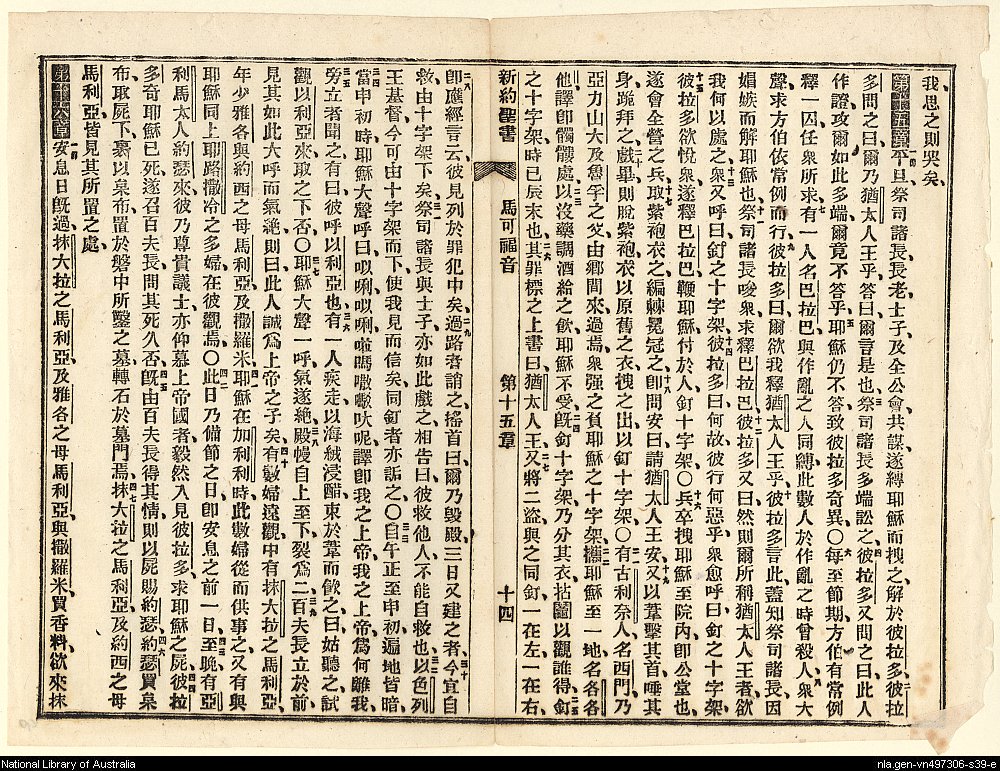 我思之則哭矣
第十五章一節平旦祭司諸長長老士子及全公會共謀遂縛耶穌而拽之解於彼拉多二彼拉
多問之曰爾乃猶太人王乎答曰爾言是也三祭司諸長多端訟之四彼拉多又問之曰此人
作證攻爾如此多端爾竟不答乎五耶穌仍不答致彼拉多奇異〇六每至節期方伯有常例
釋一囚任衆所求七有一人名巴拉巴與作亂之人同縛此數人於作亂之時曾殺人八衆大
聲求方伯依常例而行九彼拉多曰爾欲我釋猶太人王乎十彼拉多言此蓋知祭司諸長因
媢嫉而解耶穌也十一祭司諸長唆衆求釋巴拉巴十二彼拉多又曰然則爾所稱猶太人王者欲
我何以處之十三衆又呼曰釘之十字架十四彼拉多曰何故彼行何惡乎衆愈呼曰釘之十字架
十五彼拉多欲悅衆遂釋巴拉巴鞭耶穌付於人釘十字架〇十六兵卒拽耶穌至院內卽公堂也
遂會全營之兵十七取紫袍衣之編棘冕冠之十八卽問安曰請猶太人王安十九又以葦擊其首唾其
身跪拜之二十戲畢則脫紫袍衣以原舊之衣拽之出以釘十字架〇二一有古利奈人名西門乃
亞力山大及魯孚之父由鄉間來過焉衆强之負耶穌之十字架二二攜耶穌至一地名各各
他譯卽髑髏處二三以沒藥調酒給之飲耶穌不受二四旣釘十字架乃分其衣拈鬮以觀誰得二五釘
之十字架時已辰末也二六其罪標之上書曰猶太人王二七又將二盜與之同釘一在左一在右
新約聖書 馬可福音 第十五章 十四
二八卽應經言云彼見列於罪犯中矣二九過路者誚之搖首曰爾乃毀殿三日又建之者三十今宜自
救由十字架下矣三一祭司諸長與士子亦如此戲之相告曰彼救他人不能自救也三二以色列
王基督今可由十字架而下使我見而信矣同釘者亦詬之〇三三自午正至申初遍地皆暗
三四當申初時耶穌大聲呼曰以唎以唎啦嗎撒㗌呔呢譯卽我之上帝我之上帝爲何離我
三五旁立者聞之有曰彼呼以利亞也三六有一人疾走以海絨浸醋束於葦而飲之曰姑聽之試
觀以利亞來取之下否〇三七耶穌大聲一呼氣遂絕三八殿幔自上至下裂爲二三九百夫長立於前
見其如此大呼而氣絕則曰此人誠爲上帝之子矣四十有數婦遠觀中有抹大拉之馬利亞
年少雅各與約西之母馬利亞及撒羅米四一耶穌在加利利時此數婦從而供事之又有與
耶穌同上耶路撒冷之多婦在彼觀焉〇四二此日乃備節之日卽安息之前一日至晚四三有亞
利馬太人約瑟來彼乃尊貴議士亦仰慕上帝國者毅然入見彼拉多求耶穌之屍四四彼拉
多奇耶穌已死遂召百夫長問其死久否四五旣由百夫長得其情則以屍賜約瑟四六約瑟買枲
布取屍下裹以枲布置於磐中所鑿之墓轉石於墓門焉四七抹大拉之馬利亞及約西之母
馬利亞皆見其所置之處
第十六章一節安息日旣過抹大拉之馬利亞及雅各之母馬利亞與撒羅米買香料欲來抹
National Library of Australia
nla.gen-vn497306-s39-e